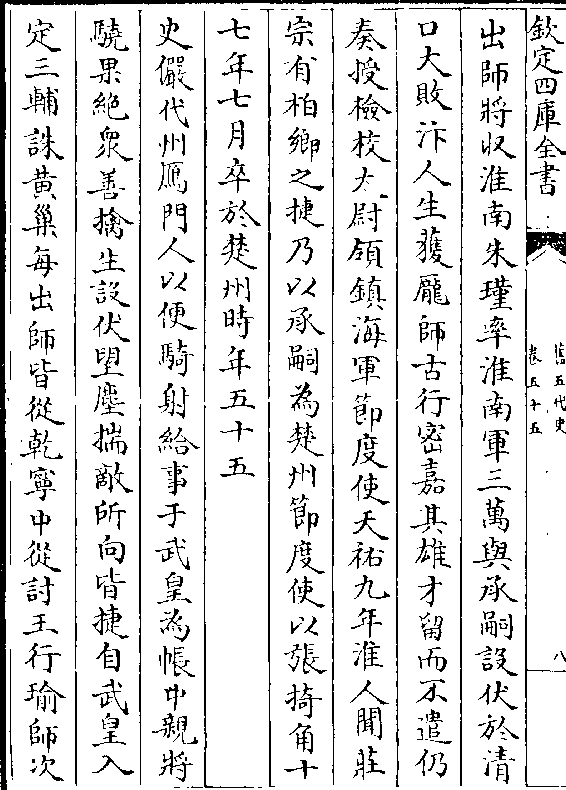 欽定四庫全書
舊五代史
卷五十五
八
出師將收淮南朱瑾率淮南軍三萬與承嗣設伏於清
口大敗汴人生獲龎師古行密嘉其雄才留而不遣仍
奏授檢校太尉領鎮海軍節度使天祐九年淮人聞莊
宗有柏鄉之捷乃以承嗣為楚州節度使以張掎角十
七年七月卒於楚州時年五十五
史儼代州鴈門人以便騎射給事于武皇為帳中親將
驍果絶衆善擒生設伏望塵揣敵所向皆捷自武皇入
定三輔誅黄巢每出師皆從乾寧中從討王行瑜師次